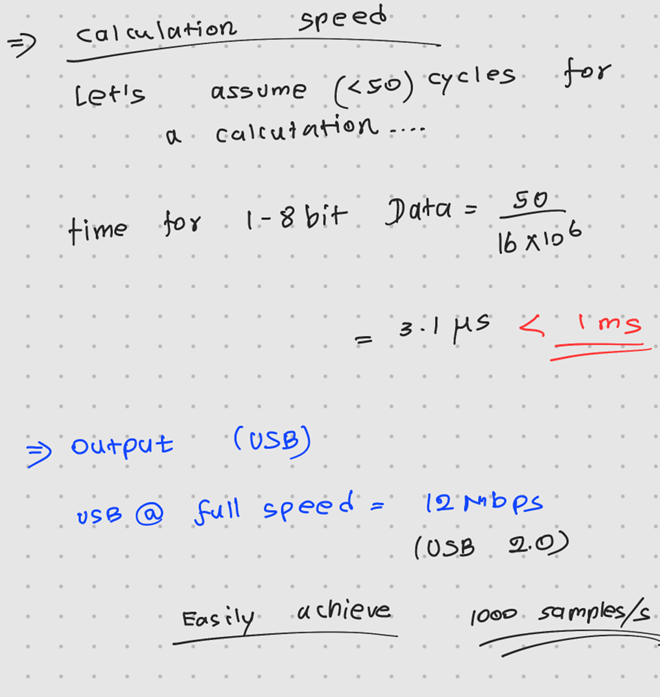 ⇒ calculation speed
Let's assume (<50) cycles for
a calculation....
time for 1-8 bit Data = 50 / 16 × 10⁶
= 3.1 μs < 1 ms
⇒ Output (USB)
USB @ full speed = 12 Mbps
(USB 2.0)
Easily achieve 1000 samples/s.